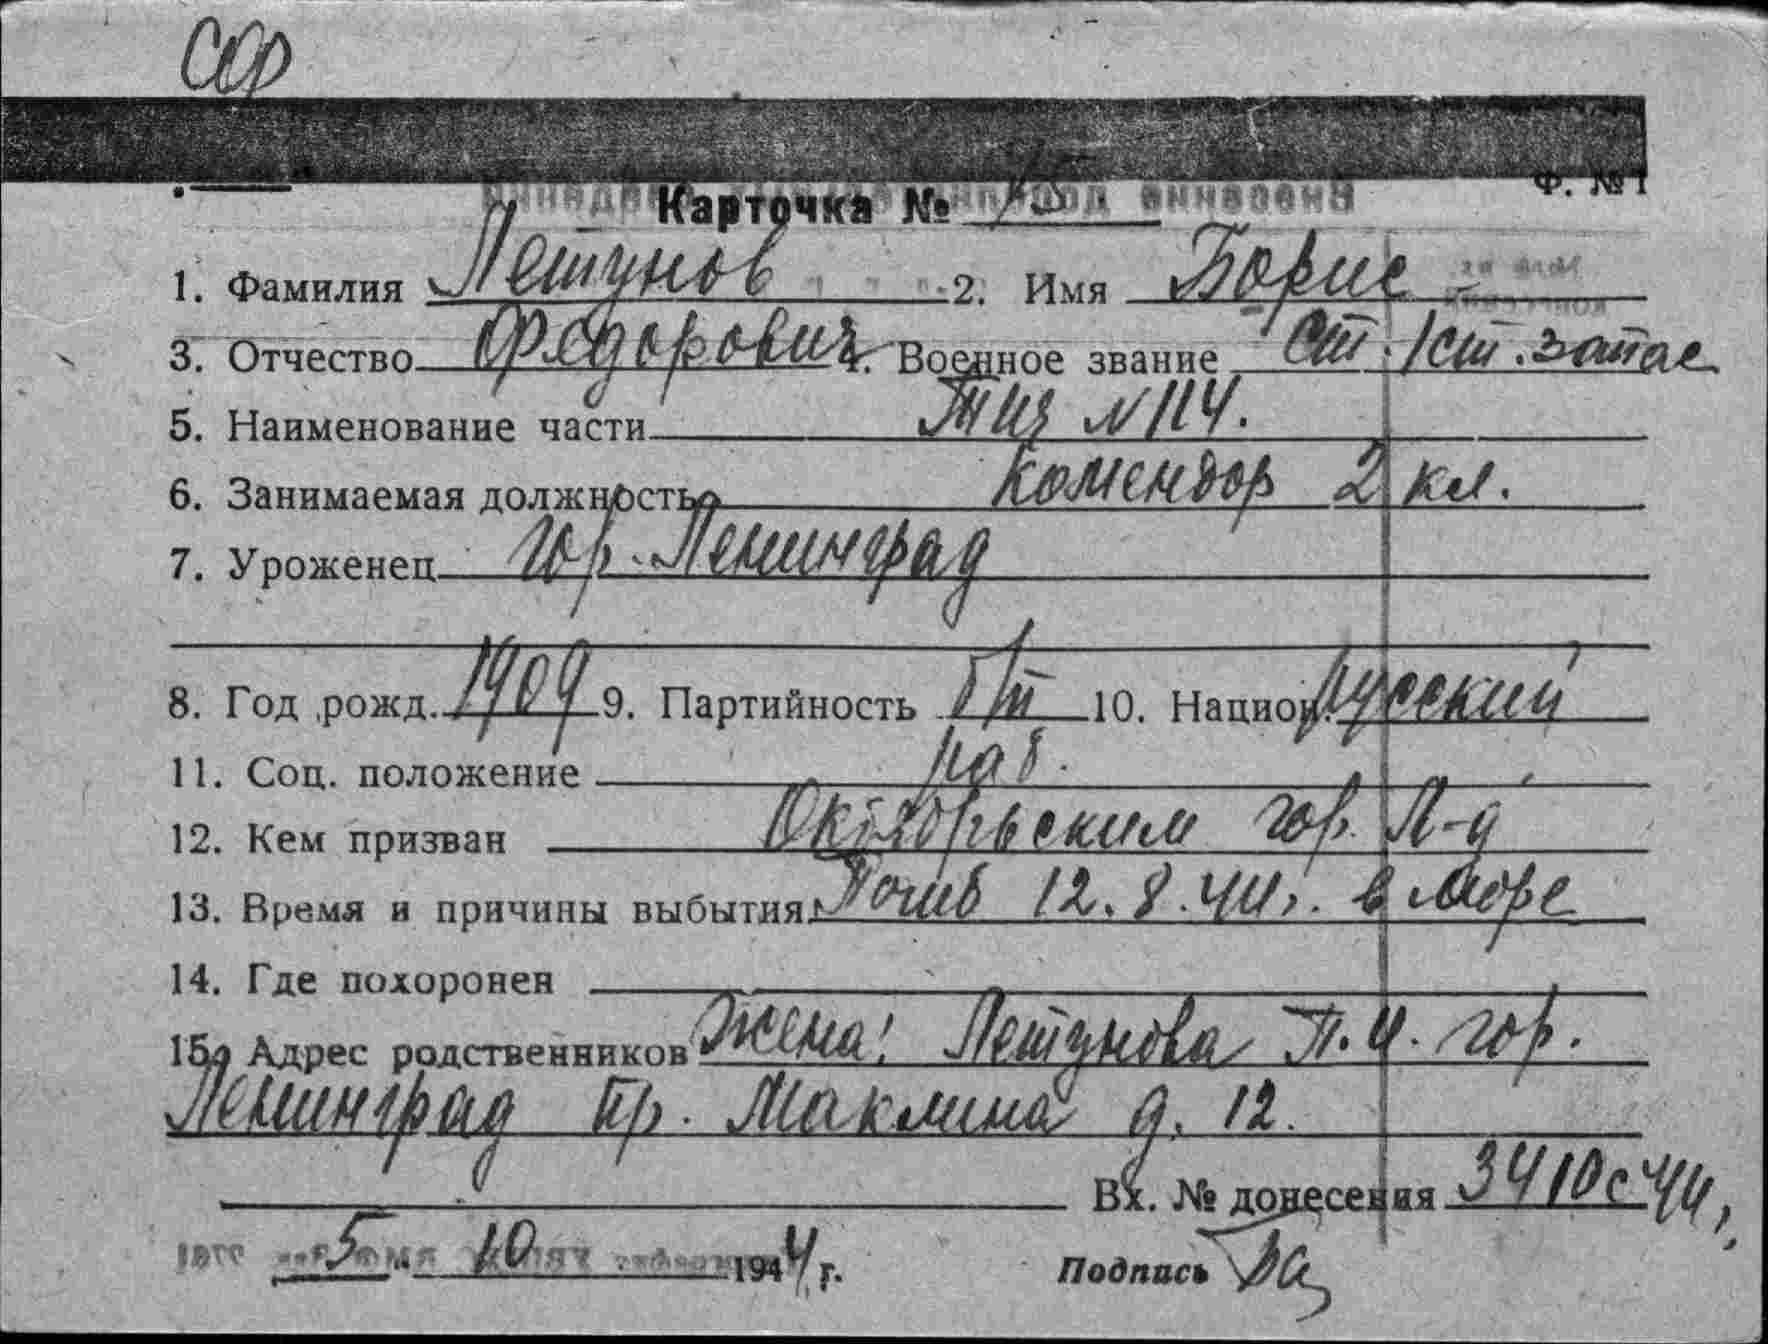 Ф. № 1
Карточка № 15
1. Фамилия Летунов 2. Имя Борис
3. Отчество Федорович 4. Военное звание Ст. 1 ст. запас
5. Наименование части ТЩ N 114.
6. Занимаемая должность комендор 2 кл.
7. Уроженец гор. Ленинград
8. Год рожд. 1909 9. Партийность б/п 10. Национ. Русский
11. Соц. положение раб.
12. Кем призван Октябрьским гор. Л-д
13. Время и причины выбытия Погиб 12.8.44г. в море
14. Где похоронен
15. Адрес родственников Жена: Летунова гор.
Ленинград пр. Маклина д. 12.
Вх. № донесения 3410с 44г.
5 10 1944 г. Подпись